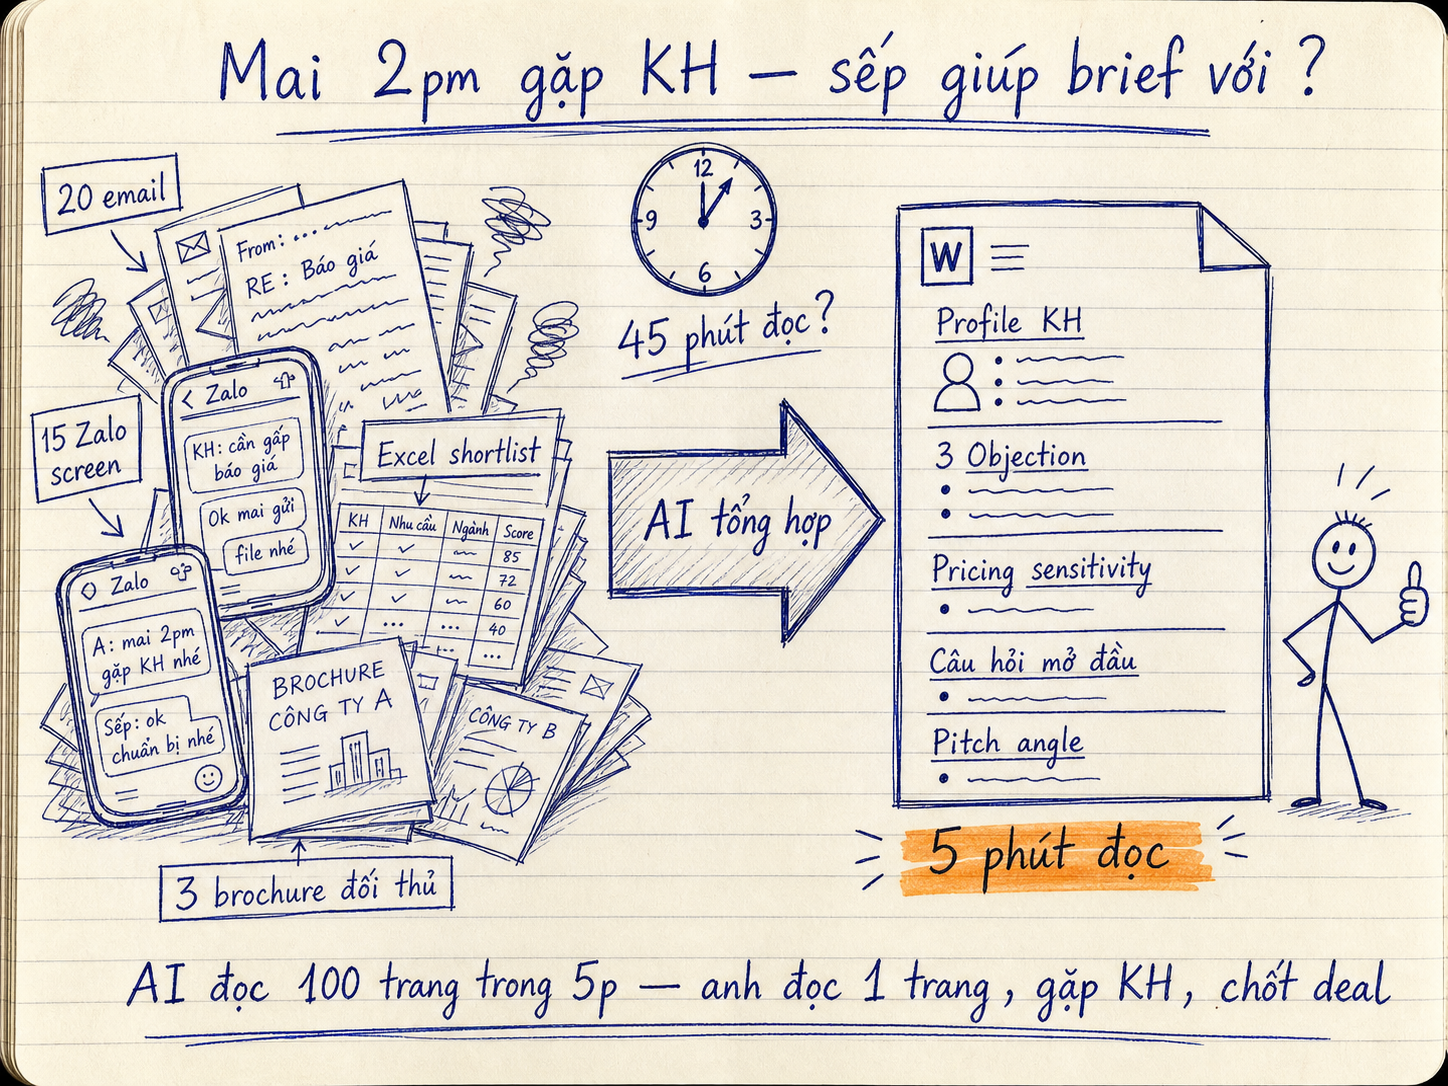 Mai 2pm gặp KH — sếp giúp brief với ?
20 email
From: ...
RE : Báo giá
12
3
6
9
45 phút đọc?
15 Zalo
screen
< Zalo
KH: cần gấp
báo giá
Ok mai gửi
file nhé
Excel shortlist
KH Nhu cầu Ngành Score
85
72
60
40
...
Zalo
A: mai 2pm
gặp KH nhé
Sếp: ok
chuẩn bị nhé
BROCHURE
CÔNG TY A
CÔNG TY B
3 brochure đối thủ
AI tổng hợp
W
Profile KH
3 Objection
Pricing sensitivity
Câu hỏi mở đầu
Pitch angle
5 phút đọc
AI đọc 100 trang trong 5p — anh đọc 1 trang, gặp KH, chốt deal